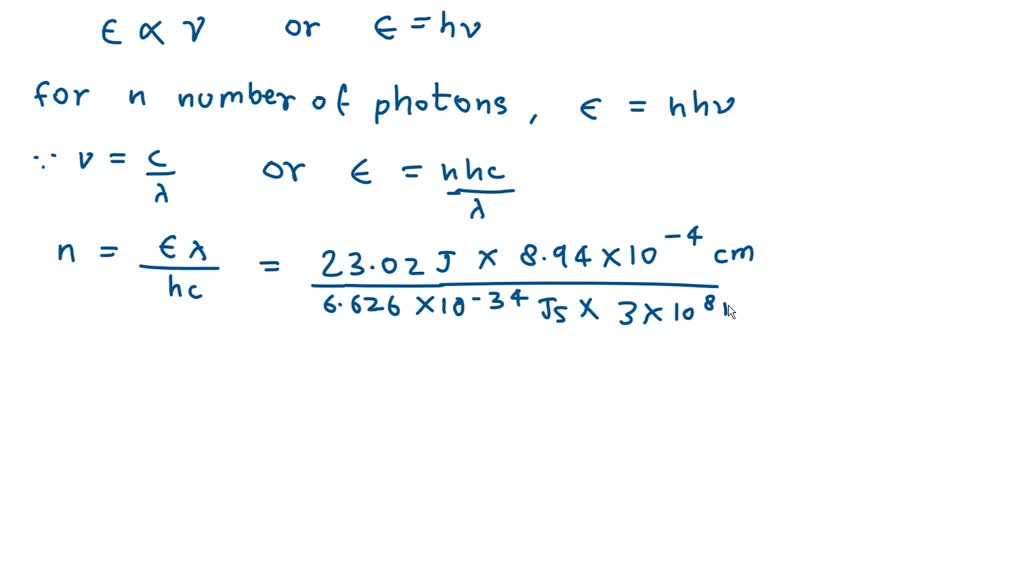 ϵ ∝ ν or ϵ = hν
for n number of photons, ϵ = nhν
∵ ν = c/λ or ϵ = nhc/λ
n = ϵλ/hc = 23.02 J × 8.94 × 10⁻⁴ cm / 6.626 × 10⁻³⁴ Js × 3 × 10⁸